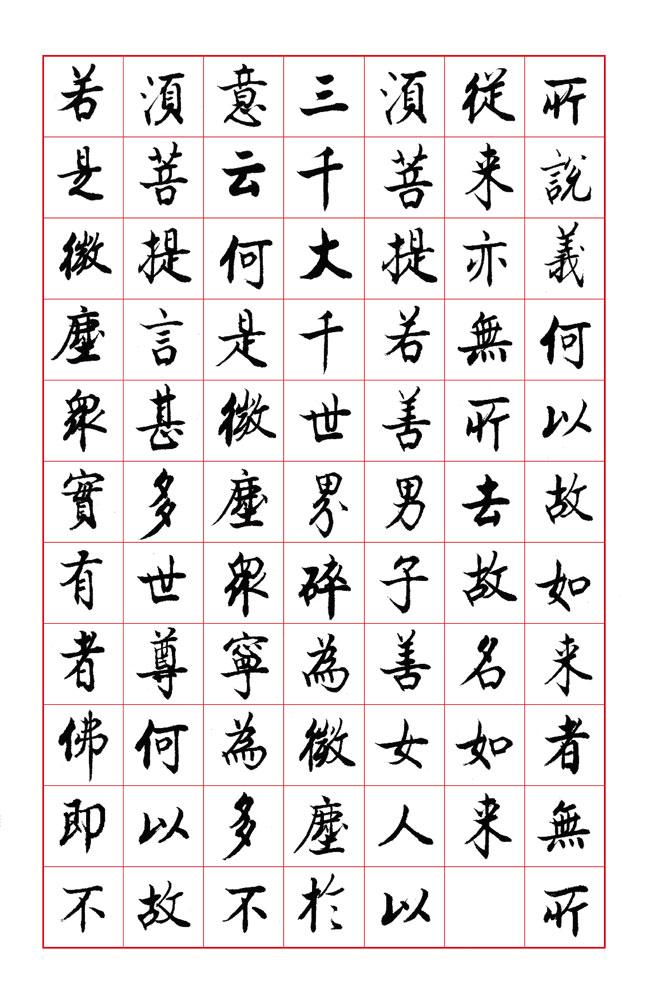 所說義何以故如来者無所
從来亦無所去故名如来
須菩提若善男子善女人以
三千大千世界碎為微塵於
意云何是微塵眾寧為多不
須菩提言甚多世尊何以故
若是微塵眾實有者佛即不